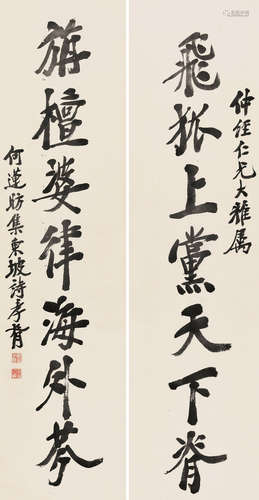 仲經仁兄大雅屬
飛狐上黨天下脊
旃檀婆律海外芬
何蓮舫集東坡詩孝胥